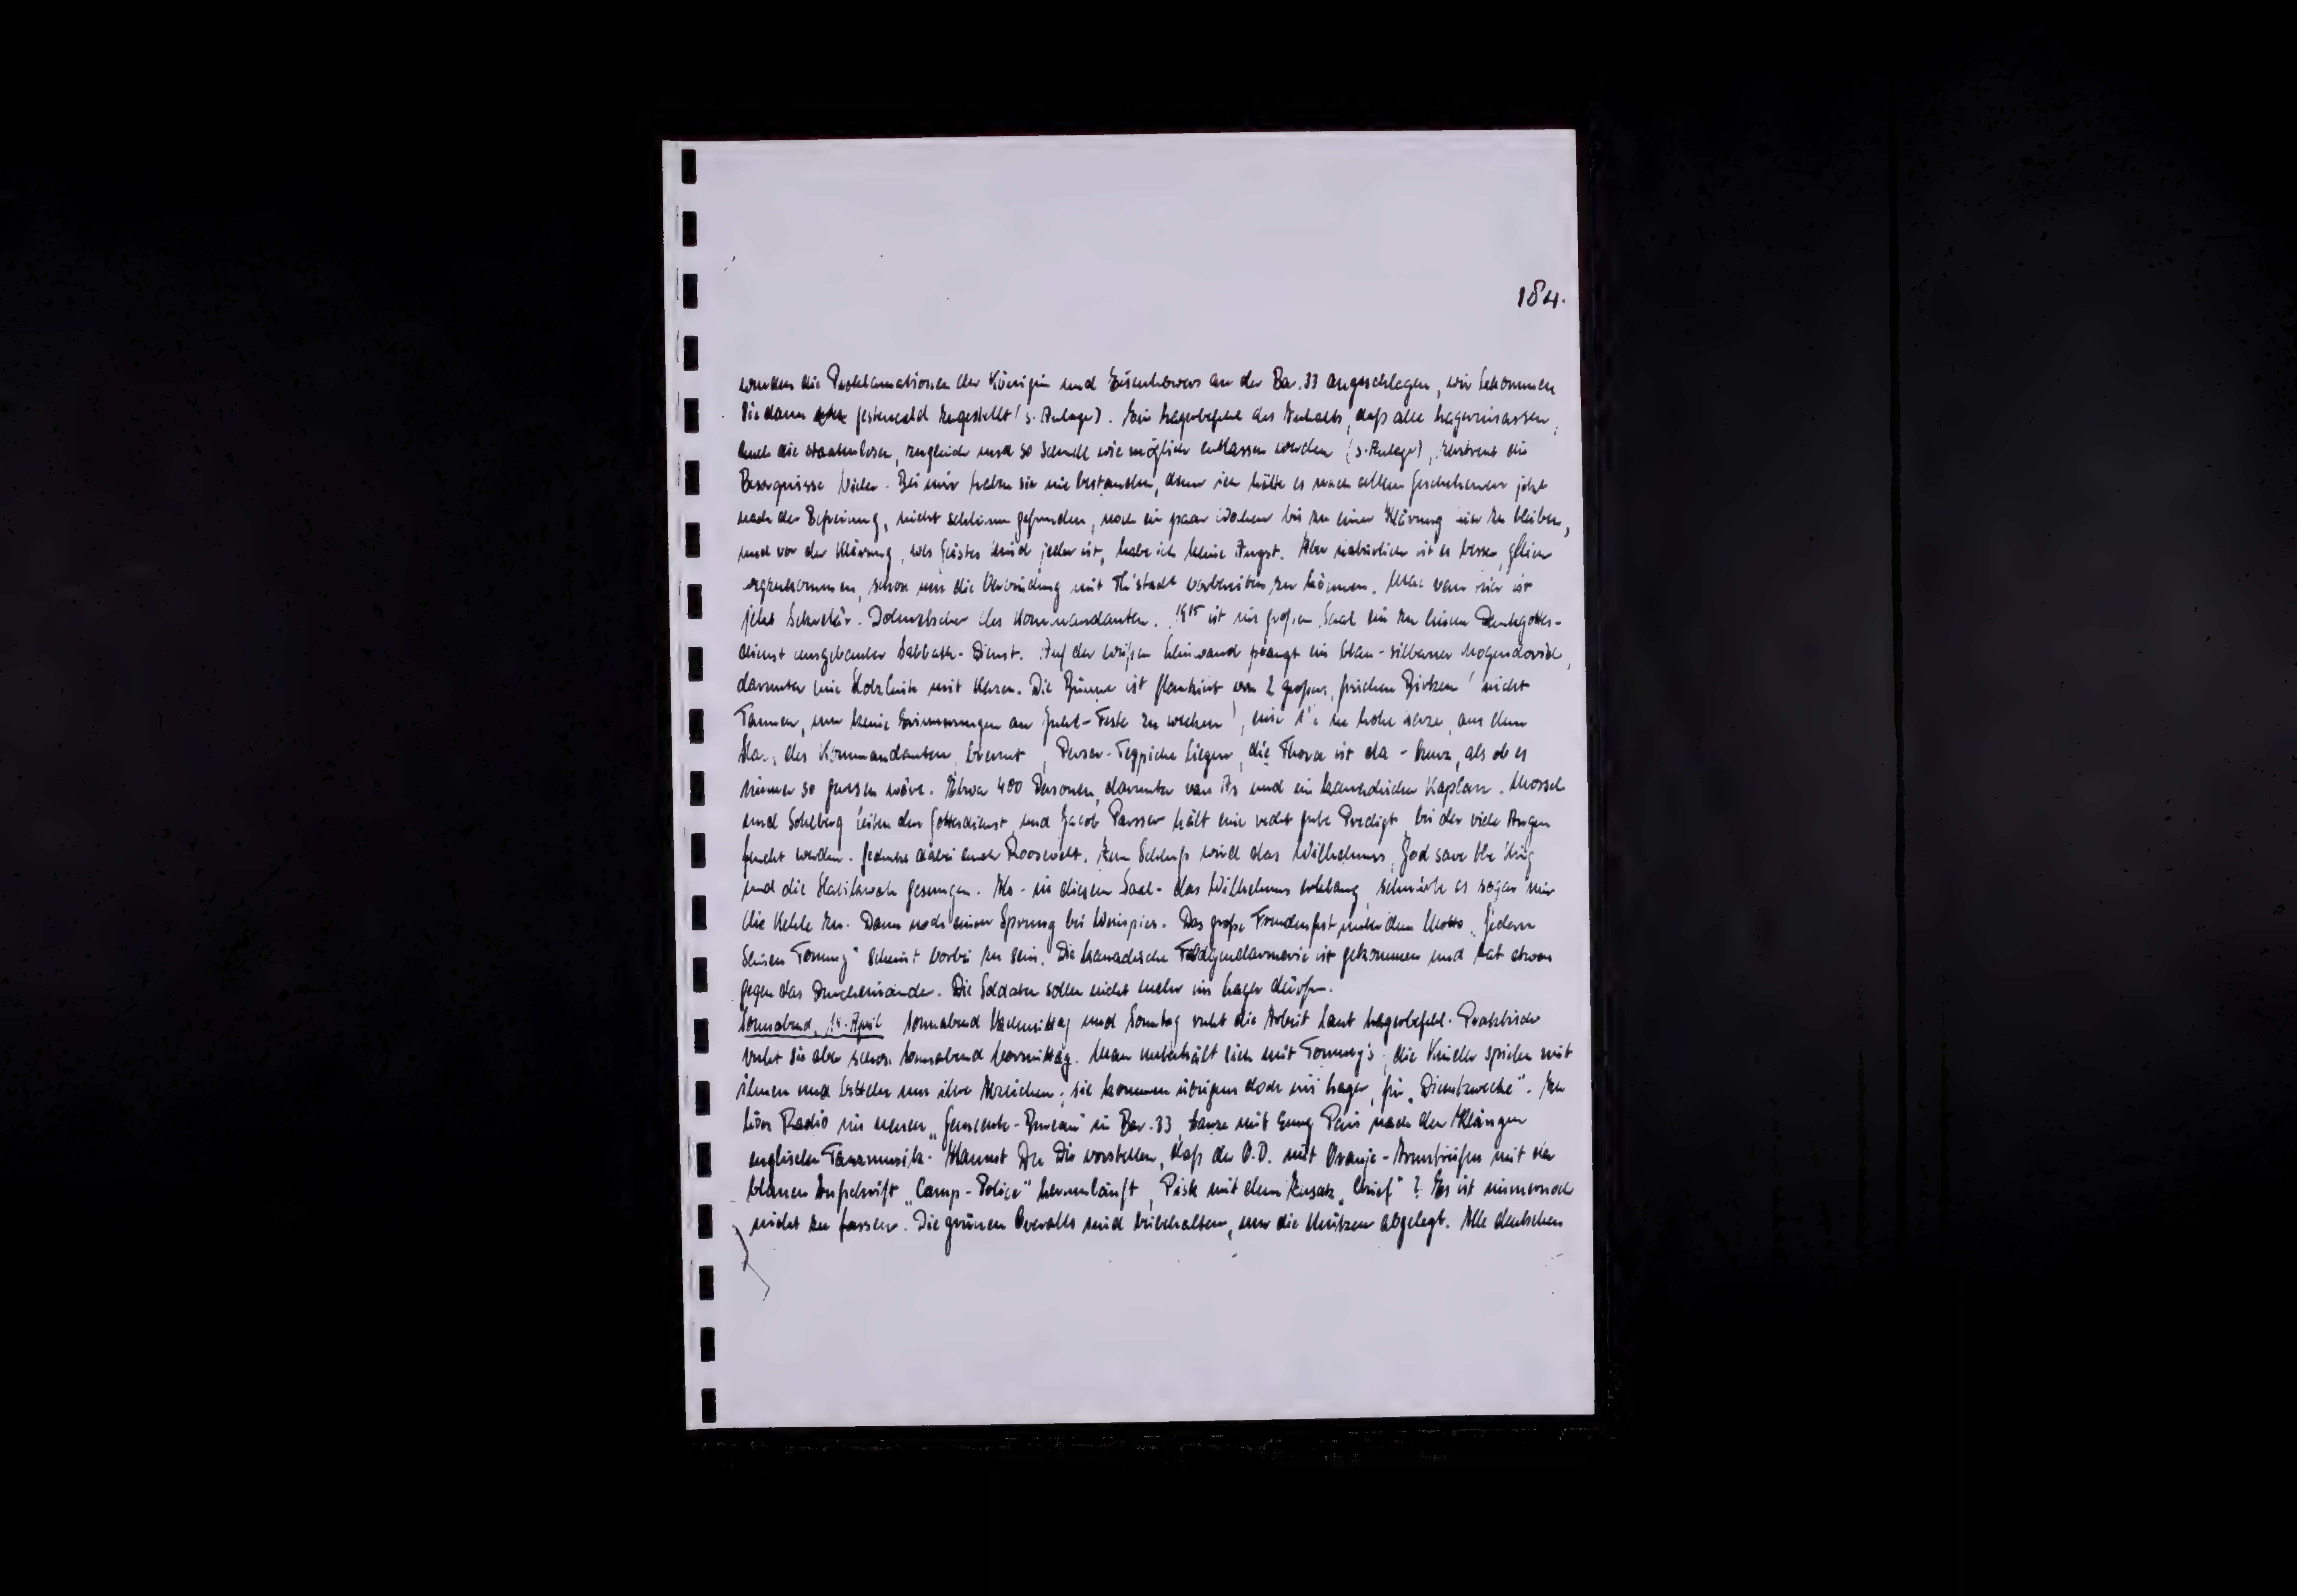 184.
wurden die Proklamationen der Königin und Eisenhowers an der Bar. 33 angeschlagen, wir bekommen
sie dann zugestellt (s. Anlage). Ein Lagerbefehl des Inhalts, daß alle Lagerinsassen,
auch die staatenlosen, zugleich und so schnell wie möglich entlassen werden (s. Anlage), zerstreut die
Besorgnisse Vieler. Bei mir haben sie nie bestanden, denn ich hätte es nach allem Geschehenen jetzt
nach der Befreiung, nicht schlimm gefunden, noch ein paar Wochen bis zu einer Klärung hier zu bleiben,
und vor der Klärung, wes Geistes Kind jeder ist, habe ich keine Angst. Aber natürlich ist es besser, gleich
wegzukommen, schon um die Verbindung mit Th'stadt vorbereiten zu können. Max van ist
jetzt Sekretär-Dolmetscher des Kommandanten. 19¹⁵ ist im großen Saal ein zu einem Dankgottes-
dienst umgebauter Sabbath-Dienst. Auf der weißen Leinwand prangt ein blau-silberner Mogendovid,
darunter eine Holzleiste mit Kerzen. Die Bühne ist flankiert von 2 großen, frischen Birken (nicht
Tannen, um keine Erinnerungen an Feste zu wecken), eine hohe Kerze, aus dem
des Kommandanten, brennt, Perser-Teppiche liegen, die Thora ist da - kurz, als ob es
immer so gewesen wäre. Etwa 400 Personen, darunter van As und ein kanadischer Kaplan. Mossel
und Sohlberg leiten den Gottesdienst, und Jacob Parsser hält eine recht gute Predigt, bei der viele Augen
feucht werden. Gedenkt dabei auch Roosevelt. Zum Schluß wird das Wilhelmus, God save the King
und die Hatikwah gesungen. Als - in diesem Saal - das Wilhelmus erklang, schnürte es sogar mir
die Kehle zu. Dann noch einen Sprung bei . Das große Freudenfest unter dem Motto „Jedem
seinen Tommy" scheint vorbei zu sein. Die kanadische Feldgendarmerie ist gekommen und hat etwas
gegen das Durcheinander. Die Soldaten sollen nicht mehr ins Lager dürfen.
Sonnabend, April Sonnabend Nachmittag und Sonntag ruht die Arbeit laut Lagerbefehl. Praktisch
ruht sie aber schon Sonnabend Vormittag. Man unterhält sich mit Tommy's, die Kinder spielen mit
ihnen und betteln um ihre Abzeichen; sie kommen übrigens doch ins Lager, für „Dienstzwecke". Ich
höre Radio in meinem -Bureau in Bar. 33, tanze mit nach den Klängen
englischer Tanzmusik. Kannst Du Dir vorstellen, daß der O.D. mit Oranje-Armstreifen mit der
blauen Aufschrift „Camp-Police" herumläuft, Pisk mit dem Zusatz „Chief"? Es ist immernoch
nicht zu fassen. Die grünen Overalls sind beibehalten, nur die Mützen abgelegt. Alle deutschen